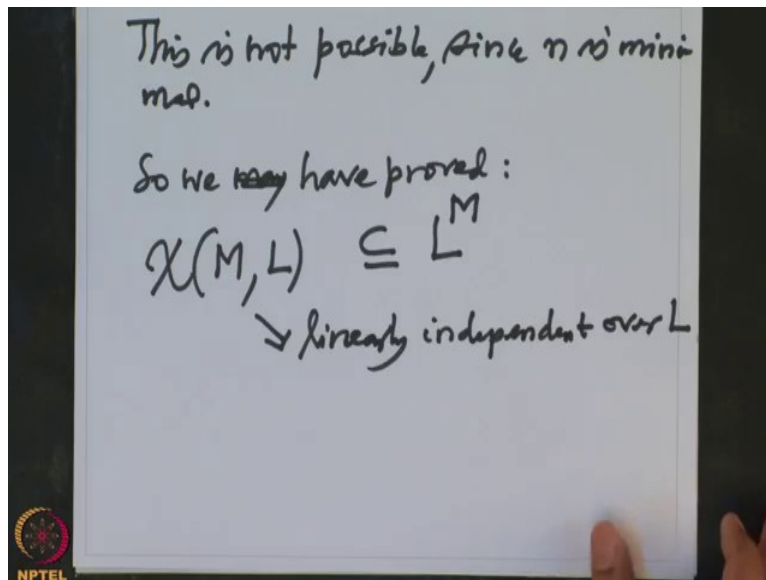 This is not possible, since n is mini-
mal.
So we have proved :
χ(M, L) ⊆ L^M
↘ linearly independent over L
NPTEL